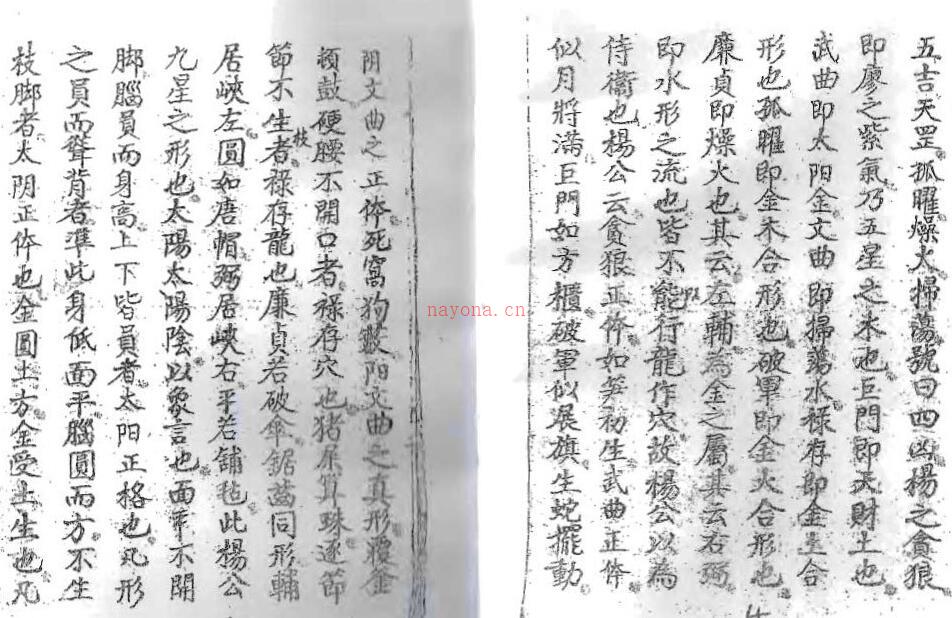 五吉天罡孤曜燥火掃蕩號曰四凶楊之貪狼
即廖之紫氣乃五星之木也巨門即天財土也
武曲即太阳金文曲即掃蕩水禄存即金土合
形也孤曜即金木合形也破軍即金火合形也
廉貞即燥火也其云左輔為金之屬其云右弼
即水形之流也皆不能行龍作穴故楊公以為
侍衛也楊公云貪狼正体如笋初生武曲正体
似月將满巨門如方櫃破軍似展旗生蛇擺動
阴文曲之正体死窩狗皺阳文曲之真形覆金
頓鼓硬腰不開口者禄存穴也猪屎算珠逐節
節不生枝者禄存龍也廉貞若破傘鋸齒同形輔
居峽左圓如唐帽弼居峽右平若舖毡此楊公
九星之形也太陽太陽陰以象言也面平不開
脚腦員而身高上下皆員者太阳正格也凡形
之員而聳背者準此身低面平腦圓而方不生
枝脚者太阴正体也金圓土方金受土生也凡
nayona.cn